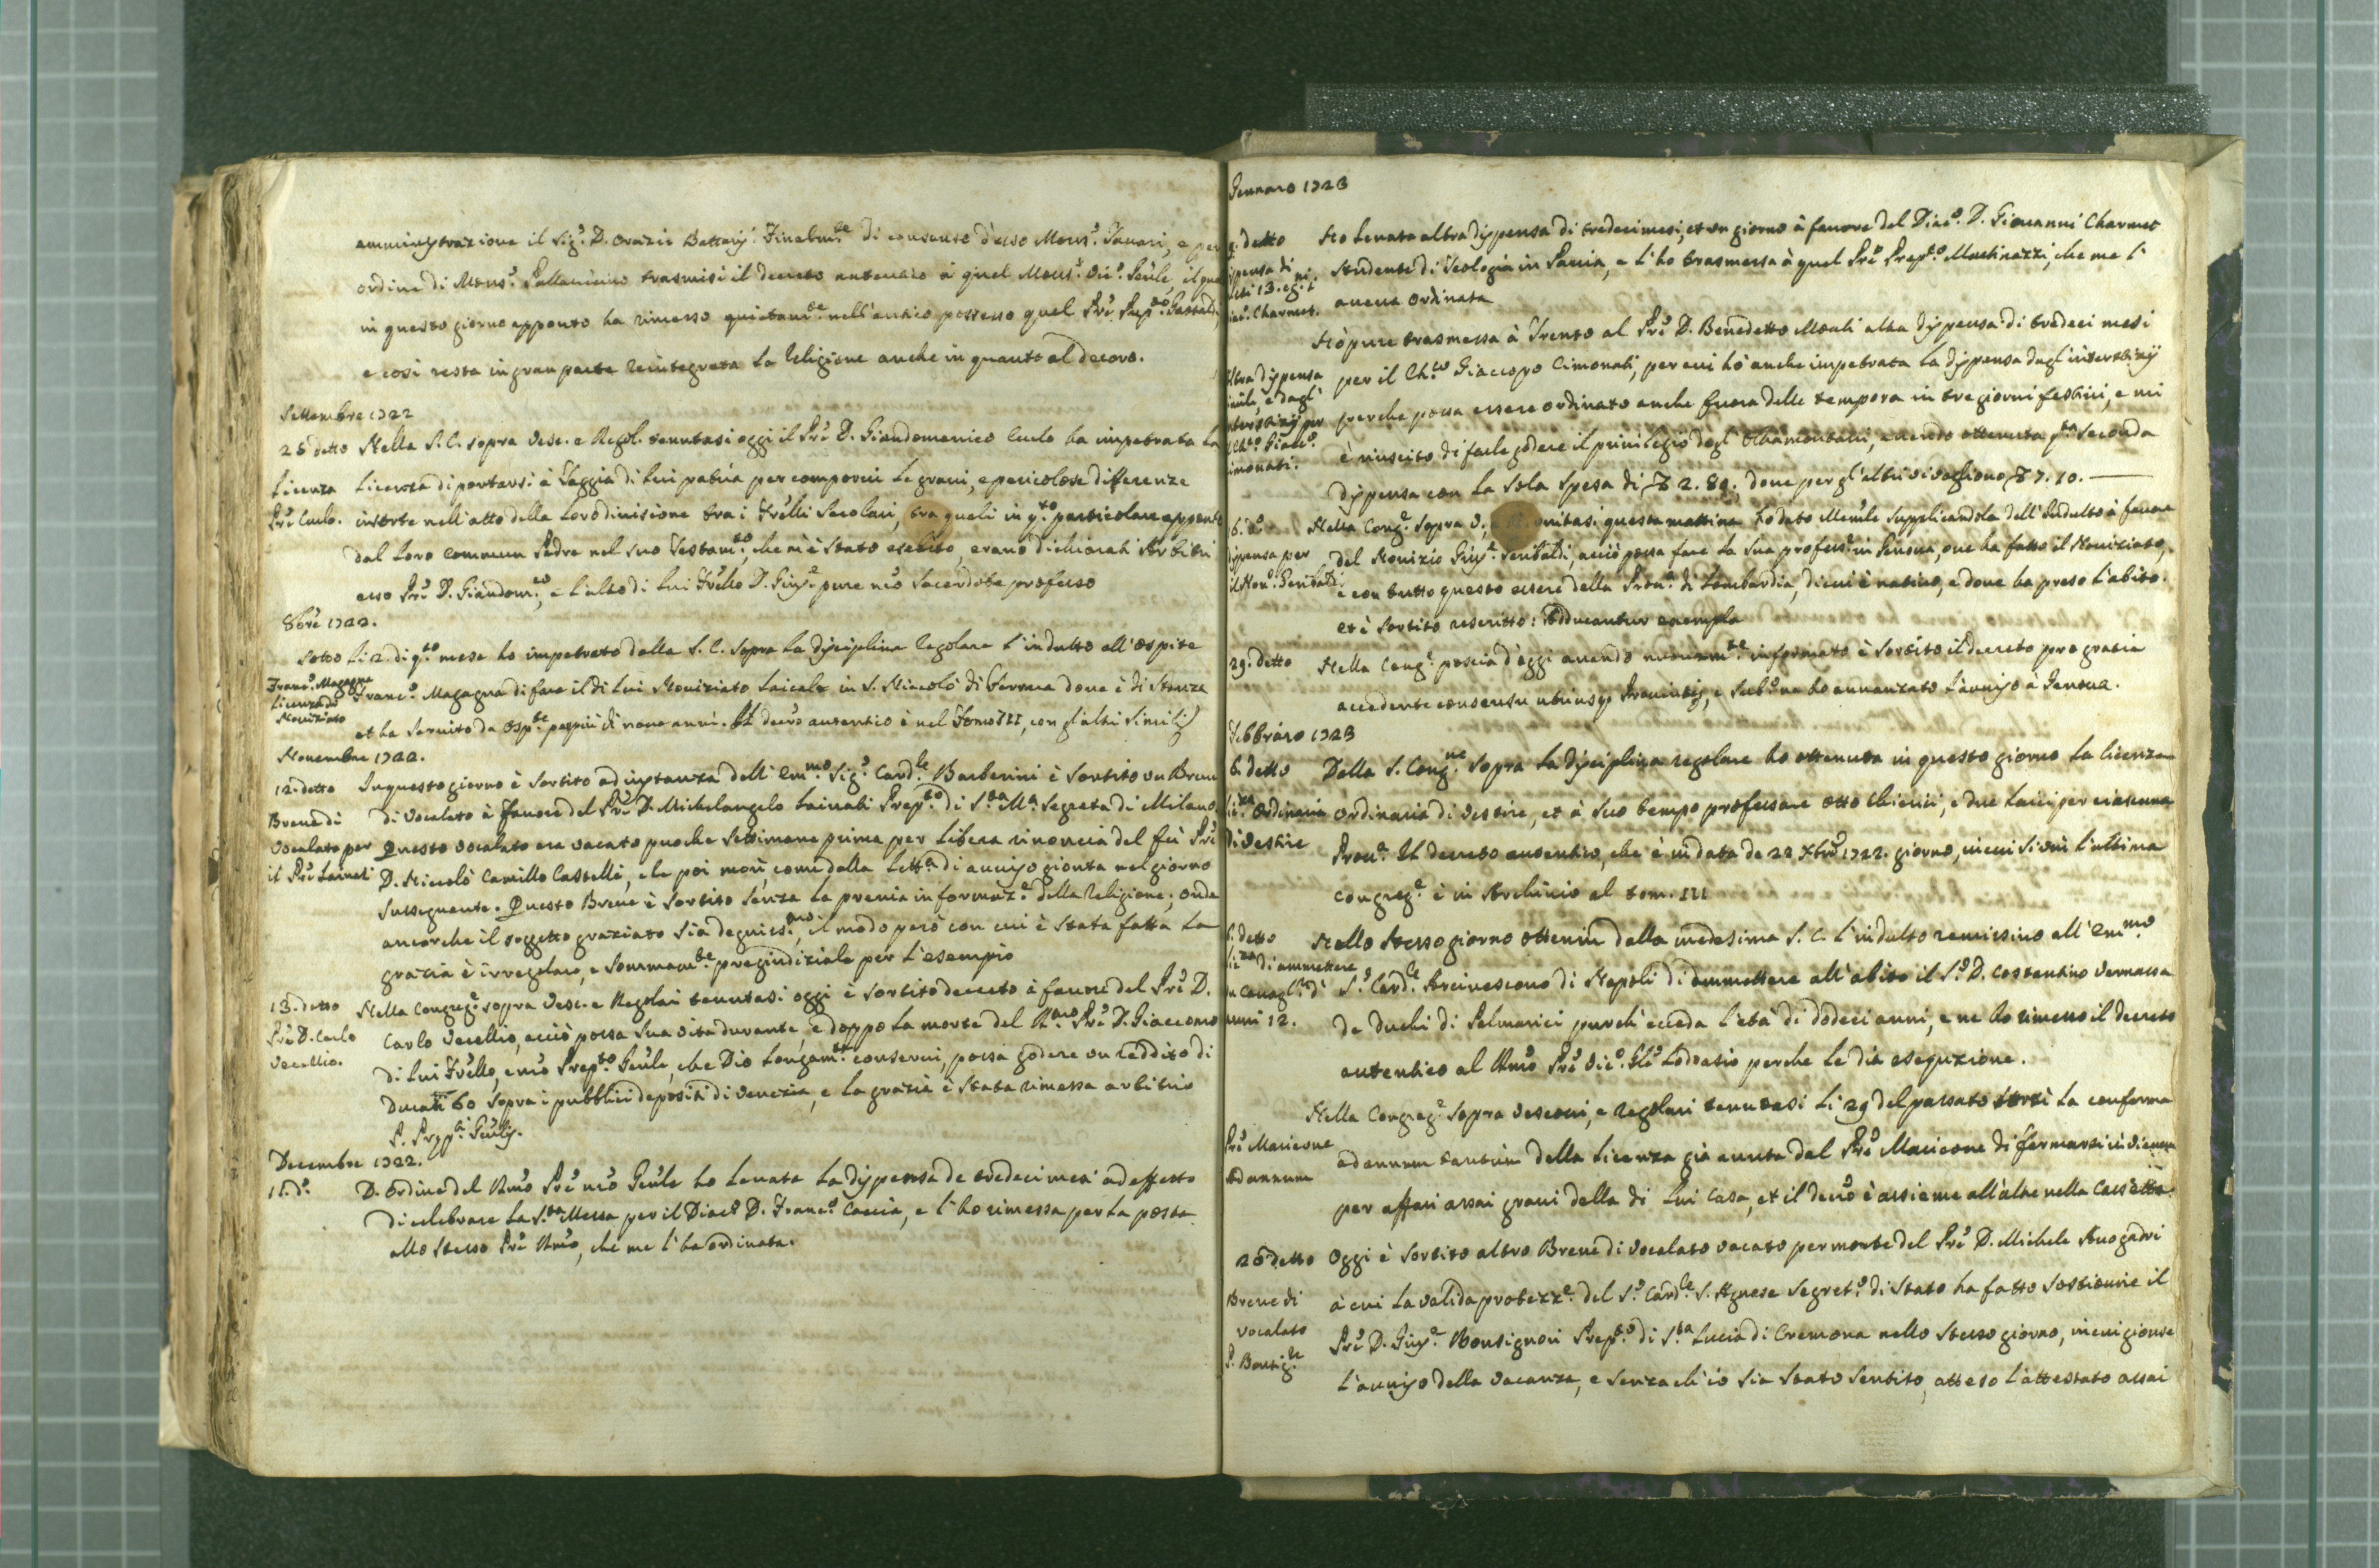 amministrazione il Sig.r D. Orazio Bettarij. Finalm.te di consenso d'esso Mons.r Tanari, e per
ordine di Mons.r Pallavicino trasmisi il decreto autentico à quel Mons.r Vic.o Gn̄le, il qua
in questo giorno apponto ha rimesso quietam.te nell'antico possesso quel Pr̄e Prep.to Gastaldi,
e così resta in gran parte reintegrata la Religione anche in quanto al decoro.
Settembre 1722
25 detto Nella S. C. sopra Vesc. e Regol. tenutasi oggi il Pr̄e D. Giandomenico Curlo ha impetrata la
Licenza licenza di portarsi à Taggia di lui patria per comporvi le gravi, e pericolose differenze
Pr̄e Curlo. insorte nell'atto della loro divisione tra i Fr̄elli Secolari, tra quali in q.to particolare apponto
dal loro commun Padre nel suo Testam.to, che n'è stato esebito, erano dichiarati Arbitri
esso Pr̄e D. Giandom.co, e l'altro di lui Fr̄ello D. Gius.e pure nr̄o Sacerdote professo
8bre 1722.
Sotto li 2. di q.to mese ho impetrato dalla S. C. sopra la disciplina Regolare l'indulto all'ospite
Franc.o Magagna Franc.o Magagna di fare il di lui Noviziato laicale in S. Niccolò di Ferrara dove è di stanza
Licenza di
Noviziato et ha servito da Osp.te per più di nove anni. Il decr̄o autentico è nel Tomo III, con gl'altri simili
Novembre 1722.
12. detto In questo giorno è sortito ad instanza dell'Em̄.mo Sig.r Card.le Barberini è sortito un Breve
Breve di di Vocalato à favore del Pr̄e D. Michelangelo Lainati Prep.to di S.ta M.a Segreta di Milano
Vocalato per Questo vocalato era vacato puoche settimane prima per libera rinoncia del fù Pr̄e
il Pr̄e Lainati D. Niccolò Camillo Castelli, che poi morì, come dalla lett.a di avviso gionta nel giorno
susseguente. Questo Breve è sortito senza la previa informaz.e della Religione; onde
ancorche il soggetto graziato sia degniss.mo, il modo però con cui è stata fatta la
grazia è irregolare, e sommam.te pregiudiziale per l'esempio
13. detto Nella Congreg.e sopra Vesc. e Regolari tenutasi oggi è sortito decreto à favore del Pr̄e D.
Pr̄e D. Carlo Carlo Vecellio, acciò possa sua vita durante, e doppo la morte del R.mo Pr̄e D. Giaccomo
Vecellio. di lui Fr̄ello, e nr̄o Prep.to Gn̄le, che Dio longam.te conservi, possa godere un reddito di
Ducati 60 sopra i pubblici depositi di Venezia, e la grazia è stata rimessa arbitrio
P. Prep.ti Gn̄lis.
Decembre 1722.
11. d.o D'ordine del Rm̄o Pr̄e nr̄o Gn̄le ho levata la dispensa de tredeci mesi ad effetto
di celebrare la S.ta Messa per il Diac.o D. Franc.o Caccia, e l'ho rimessa per la posta
allo stesso Pr̄e Rm̄o, che me l'ha ordinata.
Gennaro 1723
detto Ho levata altra dispensa di tredeci mesi, et un giorno à favore del Diac.o D. Giovanni Charmet
ispensa di Studente di Teologia in Pavia, e l'ho trasmessa à quel Pr̄e Prep.to Martinezzi, che me l'
Charmet. aveva ordinata
Hò pure trasmessa à Trento al Pr̄e D. Benedetto Monti altra dispensa di tredeci mesi
ltra dispensa per il Ch.co Giaccopo Cimonati, per cui hò anche impetrata la dispensa dagl'interstizij
simile, e dagl'
nterstizij per perche possa essere ordinato anche fuora delle tempora in tre giorni festivi, e mi
l Ch.o Giac.o
imonati. è riuscito di farle godere il privilegio degl'Oltramontani, avendo ottenuta q.ta seconda
dispensa con la sola spesa di 2. 80., dove per gl'altri vi vogliono 7. 10.
6. d.o Nella Cong.e sopra V, questa mattina ho dato Mem̄le supplicandola dell'Indulto à favore
ispensa per del Novizio Gius.e Geribaldi, acciò possa fare la sua profess.e in Genova, ove ha fatto il Noviziato,
il Nov.o Geribaldi. e con tutto questo essere della Prov.a di Lombardia, di cui è nativo, e dove ha preso l'abito.
et è sortito rescritto: Adducantur exempla
29. detto Nella Cong.e poscia d'oggi avendo nuovam.te informato è sortito il decreto pro gratia
accedente consensu utriusq. Provintiæ, e subito ne ho avvanzato l'avviso à Genova.
Febbraro 1723
6. detto Dalla S. Cong.ne sopra la disciplina regolare ho ottenuta in questo giorno la licenza
Li.za Ordinaria ordinaria di vestire, et à suo tempo professare otto Chierici, e due Laici per ciascuna
di vestire Prov.a Il decreto autentico, che è in data de 22 Xbre 1722. giorno, in cui si unì l'ultima
Congreg.e è in Archivio al tom. III
detto Nello stesso giorno ottenni dalla medesima S. C. l'indulto remissivo all'Em̄.mo
Li.za di ammettere
un Cavagl.re di S.r Card.le Arcivescovo di Napoli di ammettere all'abito il S.r D. Costantino Vernassa
anni 12. de Duchi di Belmarici purch'ecceda l'età di dodeci anni, e ne ho rimesso il decreto
autentico al Rm̄o Pr̄e Vic.o Gl̄e Lodoasio perche le dia esequzione.
Nella Congreg.e sopra Vescovi, e Regolari tenutasi li 29 del passato sortì la conferma
Pr̄e Maricone ad annum tantum della licenza già avuta dal Pr̄e Maricone di fermarsi in Vienna
Ad annum
per affari assai gravi della di lui Casa, et il decr̄o è assieme all'altre nella Cassetta.
26 detto Oggi è sortito altro Breve di Vocalato vacato per morte del Pr̄e D. Michele Avogadri
Breve di à cui la valida protezz.e del S.r Card.le S. Agnese Segret.o di Stato ha fatto sostituire il
vocalato Pr̄e D. Gius.e Bonsignori Prep.to di S.ta Lucia di Cremona nello stesso giorno, in cui gionse
P. Bonsig.ri l'avviso della vacanza, e senza ch'io sia stato sentito, atteso l'attestato assai